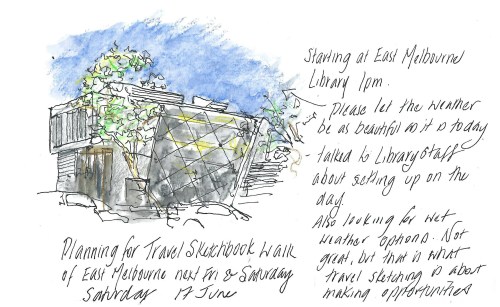 Starting at East Melbourne
Library 1pm.
Please let the weather
be as beautiful as it is today.
- talked to Library Staff
about setting up on the
day.
Also looking for wet
weather options. Not
great, but that is what
travel sketching is about
making opportunities
Planning for Travel Sketchbook Walk
of East Melbourne next Fri & Saturday
Saturday 17 June